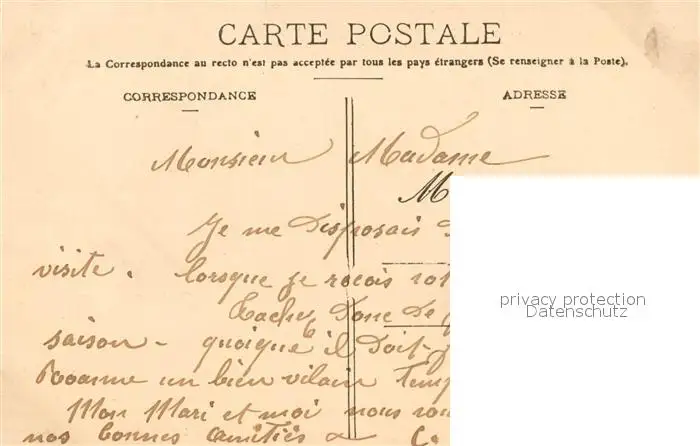 CARTE POSTALE
La Correspondance au recto n'est pas acceptée par tous les pays étrangers (Se renseigner à la Poste).
CORRESPONDANCE
ADRESSE
Monsieur Madame
M
Je me disposais
visite. lorsque je reçois
privacy protection
Datenschutz
donc de
saison - quoiqu'il doit
Roanne un bien vilain temp
Mon Mari et moi nous
nos bonnes amitiés